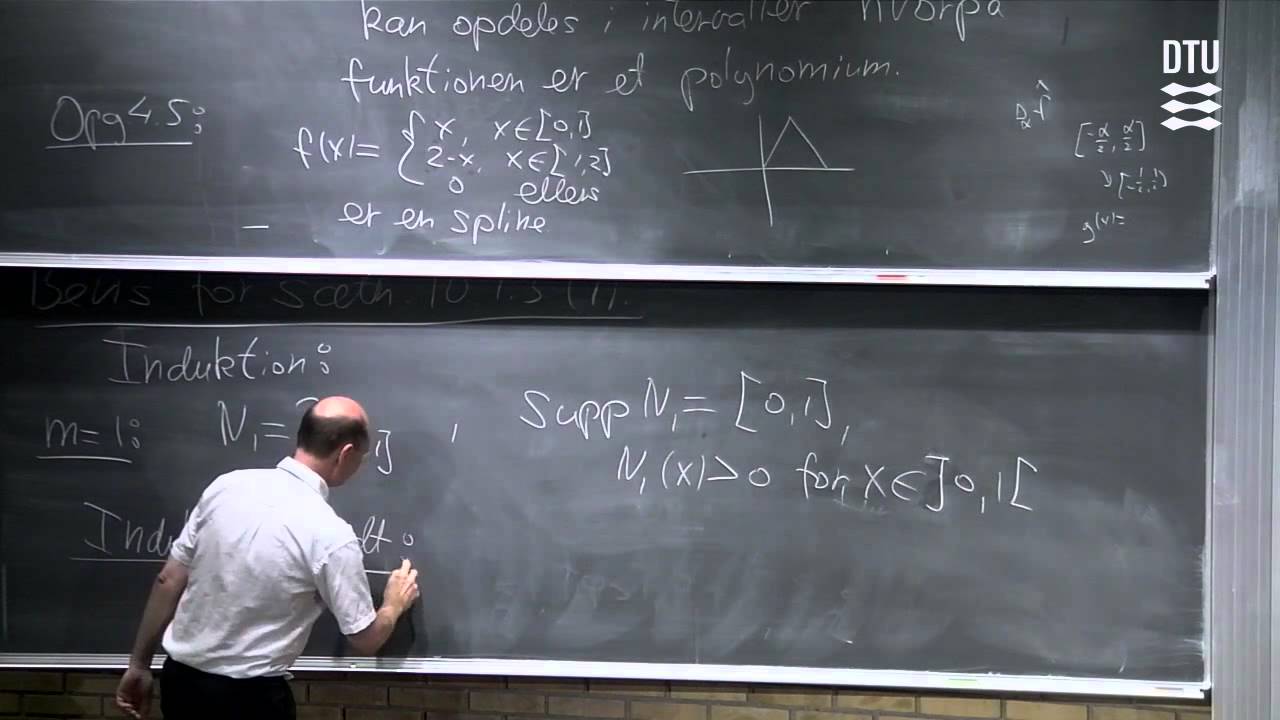 kan opdeles i intervaller hvorpå
funktionen er et polynomium.
Opg 4.5:
f(x)= { x, x∈[0,1]
2-x, x∈[1,2]
0 ellers
er en spline
[-α/2, α/2]
g(x)=
DTU
Bevis for Sætn. 10.1.3 (i).
Induktion:
m=1: N₁= 1] , supp N₁ = [0,1],
N₁(x)>0 for x∈]0,1[